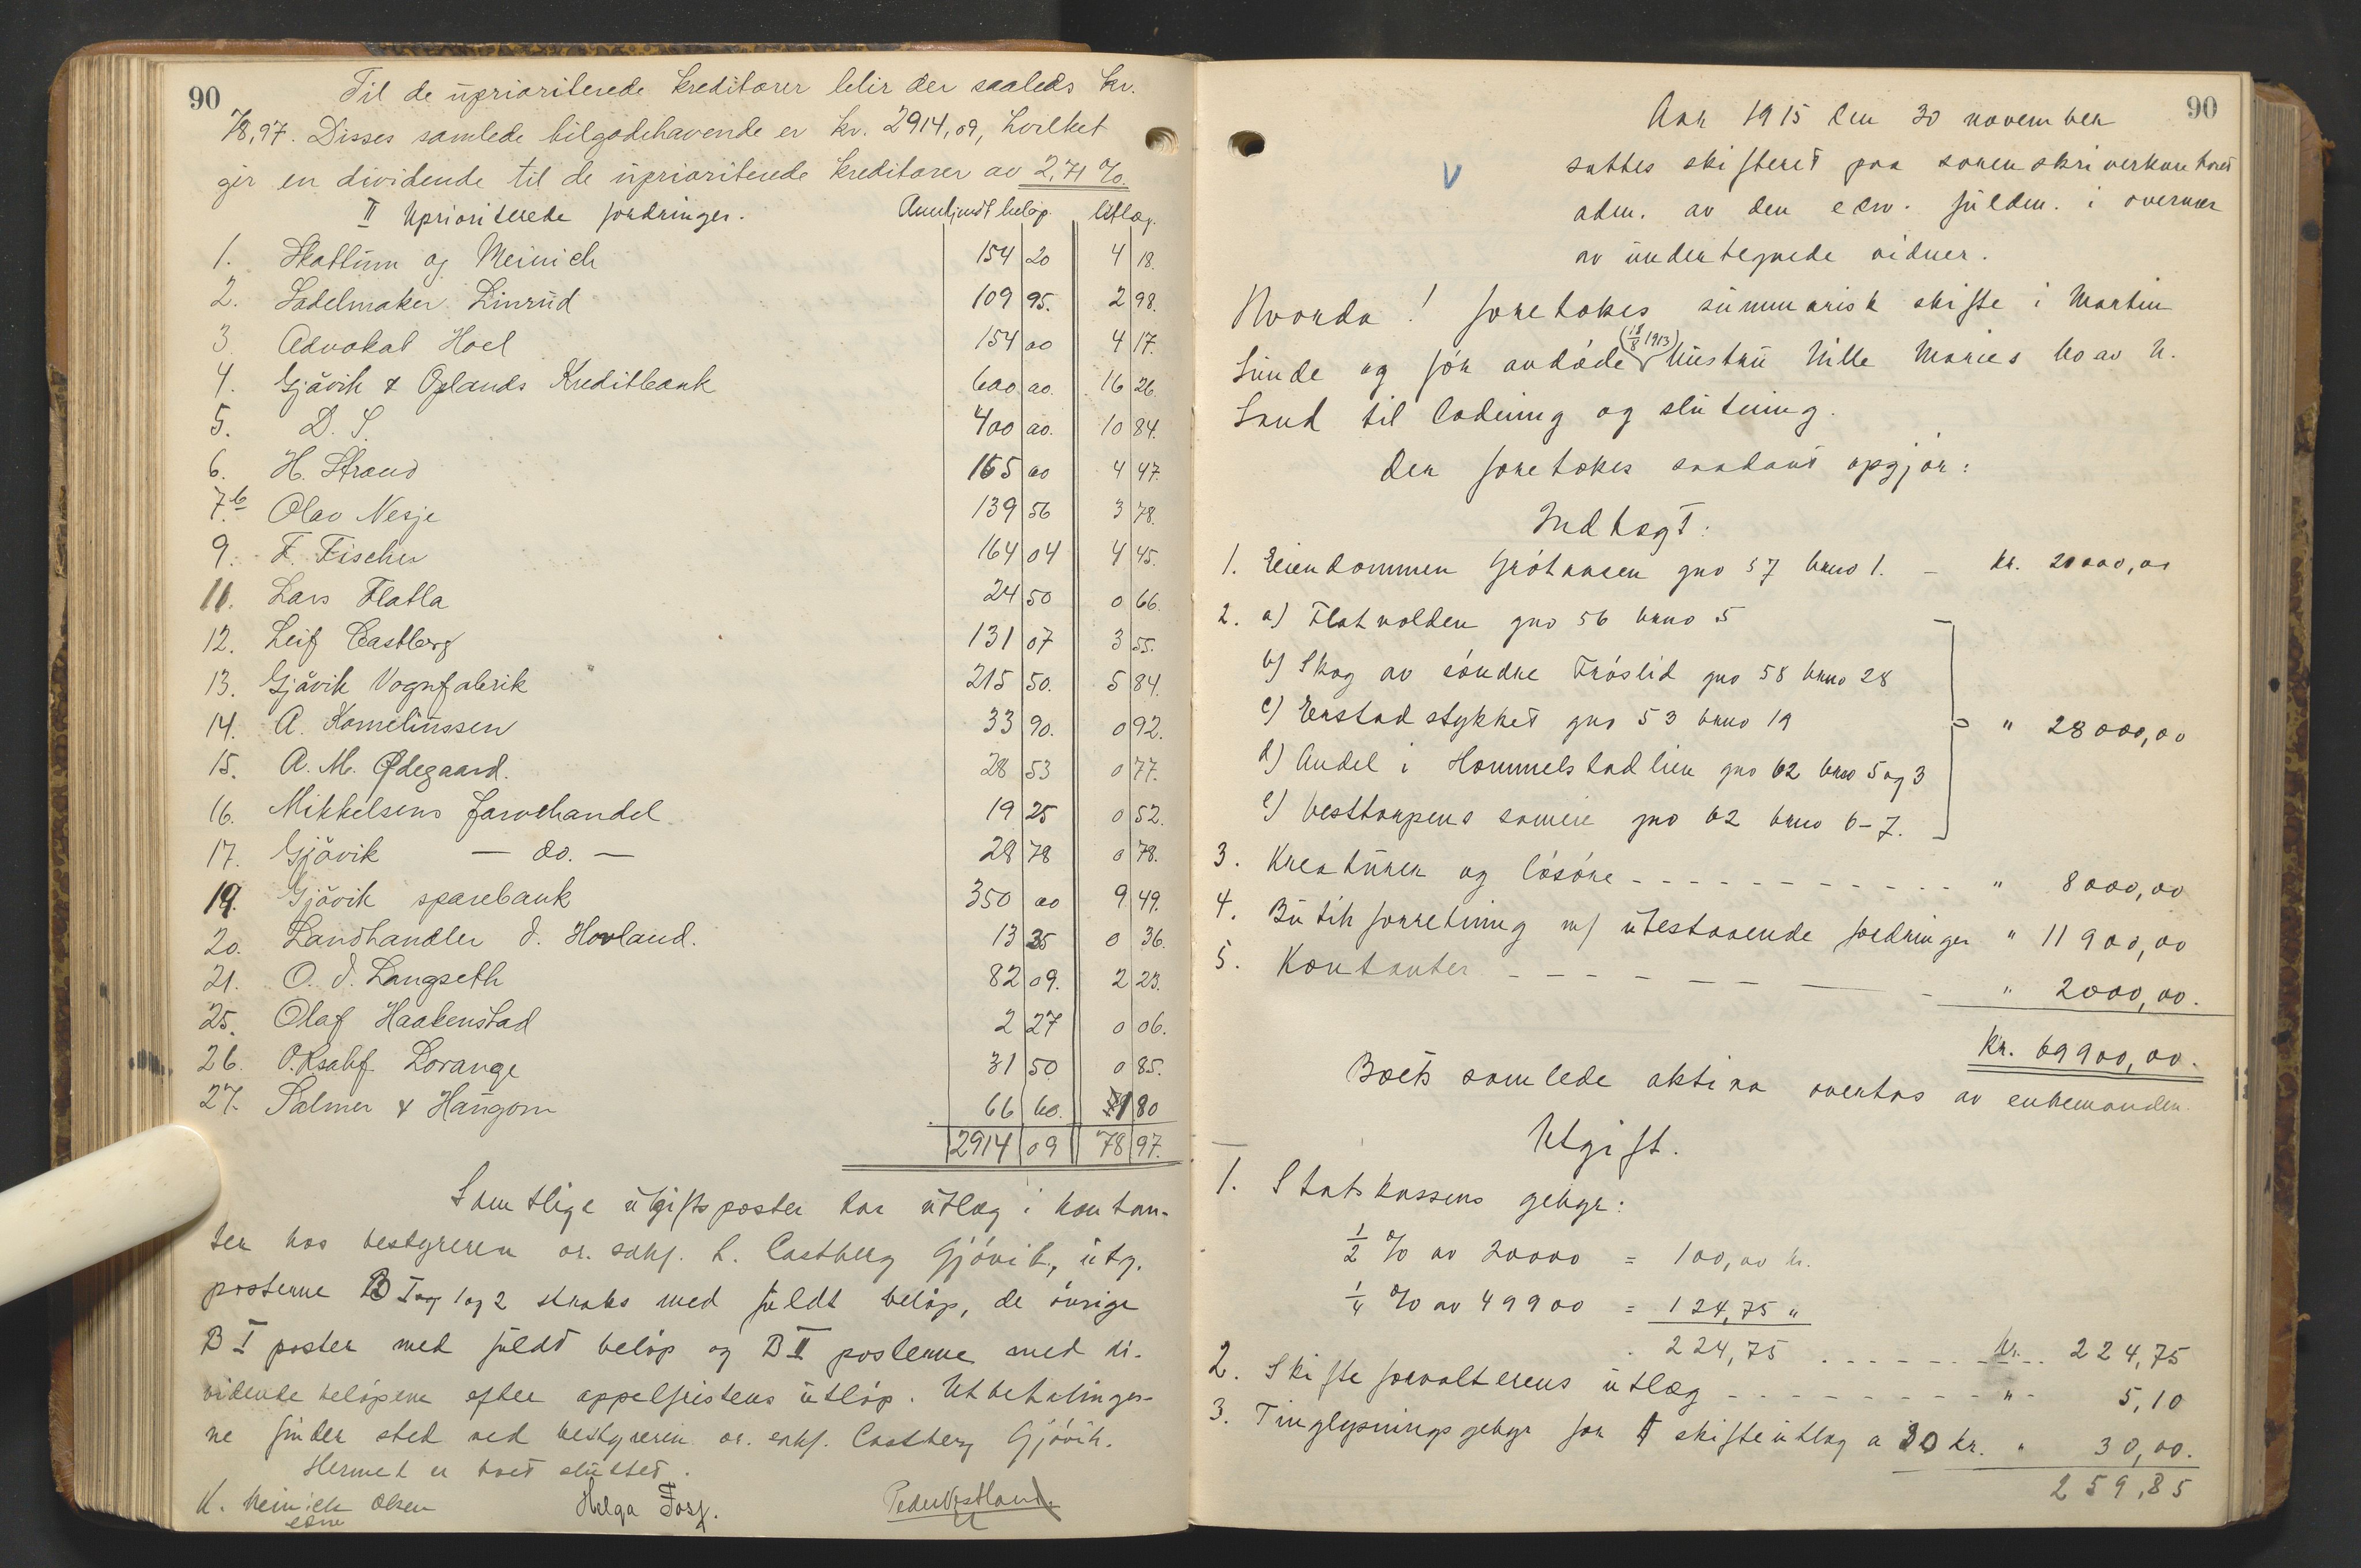 90
Til de uprioriterede kreditorer blir der saaledes kr.
78,97. Disses samlede tilgodehavende er kr. 2914,09, hvilket
gir en dividende til de uprioriterede kreditorer av 2,71 %.
II Uprioriterede fordringer. Anmeldt beløp. Utlæg.
1. Skattum og Meinich 154 20 4 18.
2. Sadelmaker Linrud 109 95. 2 98.
3 Advokat Hoel 154 00 4 17.
4. Gjøvik & Oplands Kreditbank 600 00. 16 26.
5. D. S. 400 00. 10 84.
6. H. Strand 165 00 4 47.
7.b Olav Nesje 139 56 3 78.
9. F. Fischer 164 04 4 45.
11. Lars Flatla 24 50 0 66.
12. Leif Castberg 131 07 3 55.
13. Gjøvik Vognfabrik 215 50. 5 84.
14. A. Korneliussen 33 90. 0 92.
15. A. M. Ødegaard. 28 53 0 77.
16. Mikkelsens farvehandel 19 25 0 52.
17. Gjøvik — do. — 28 78 0 78.
19. Gjøvik sparebank 350 00 9 49.
20. Landhandler J. Hovland. 13 35 0 36.
21. O. J. Langseth 82 09. 2 23.
25. Olaf Haakenstad 2 27 0 06.
26. O.Rsakf. Lorange 31 50 0 85.
27. Salmer & Haugom 66 60. 1 80
2914 09 78 97.
Samtlige utgiftsposter har utlæg i kontan-
ter hos bestyreren or. sakf. L. Castberg Gjøvik, utg.
posterne B I 1 og 2 straks med fuldt beløp, de øvrige
B I poster med fuldt beløp og B II posterne med di-
vidende beløpene efter appelfristens utløp. Utbetalinger-
ne finder sted ved bestyreren or. sakf. Castberg Gjøvik.
Hermed er boet sluttet.
K. Meinich Olsen Helga Foss.
edsv
90
Aar 1915 den 30 november
sattes skifteret paa sorenskriverkontoret
adm. av den edsv. fuldm. i overvær
av undertegnede vidner.
Hvorda! foretokes summarisk skifte i Martin
Lunde og før avdøde (18/8 1913) hustru Nille Maries bo av N.
Land til lodning og slutning.
Der foretokes saadant opgjør:
Indtægt:
1. Eiendommen Grøtaasen gno 57 bruno 1. — kr. 20000,00
2. a) Flatvolden gno 56 bruno 5
b) Skog av søndre Frøslid gno 58 bruno 28
c) Erstadstykket gno 53 bruno 19
" 28000,00
d) Andel i Hommelstadlien gno 62 bruno 5 og 3
e) Vesttorpens sameie gno 62 bruno 6-7.
3. Kreaturer og løsøre - - - - " 8000,00
4. Butikforretning m/ utestaaende fordringer " 11900,00
5. Kontanter - - - - " 2000,00.
kr. 69900,00.
Boets samlede aktiva overtas av enkemanden.
Utgift.
1. Statskassens gebyr:
1/2 % av 20000 = 100,00 kr.
1/4 % av 49900 = 124,75 "
224,75 - - - - kr. 224,75
2. Skifteforvalterens utlæg - - - - " 5,10
3. Tinglysningsgebyr for skifteutlæg a 30 kr. " 30,00.
259,85